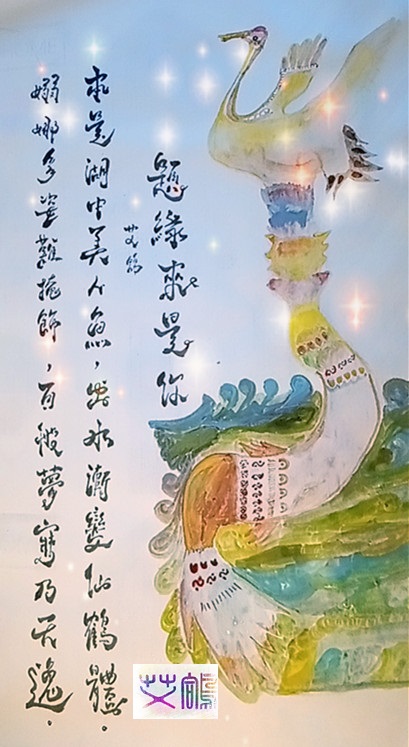 題緣來是你
艾鴿
本是湖中美人魚，出水漸變仙鶴體。
嫋娜多姿難掩飾，百般夢寫乃天逸。
艾鴿